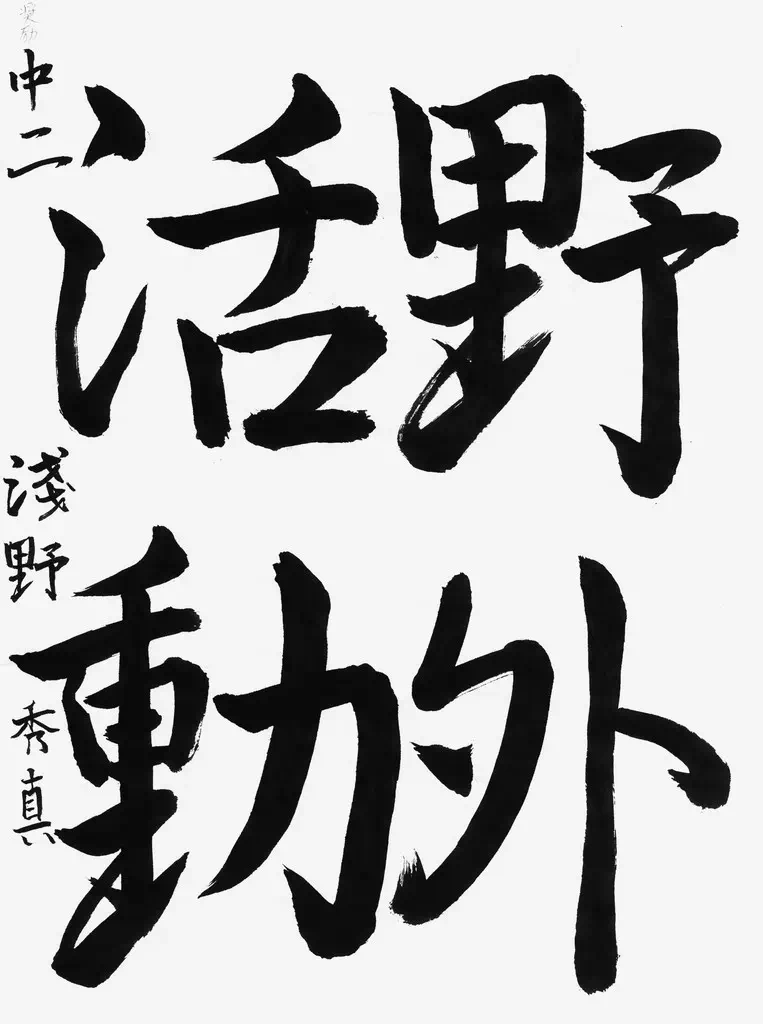 野外
活動
中二
淺野
秀真
奨励